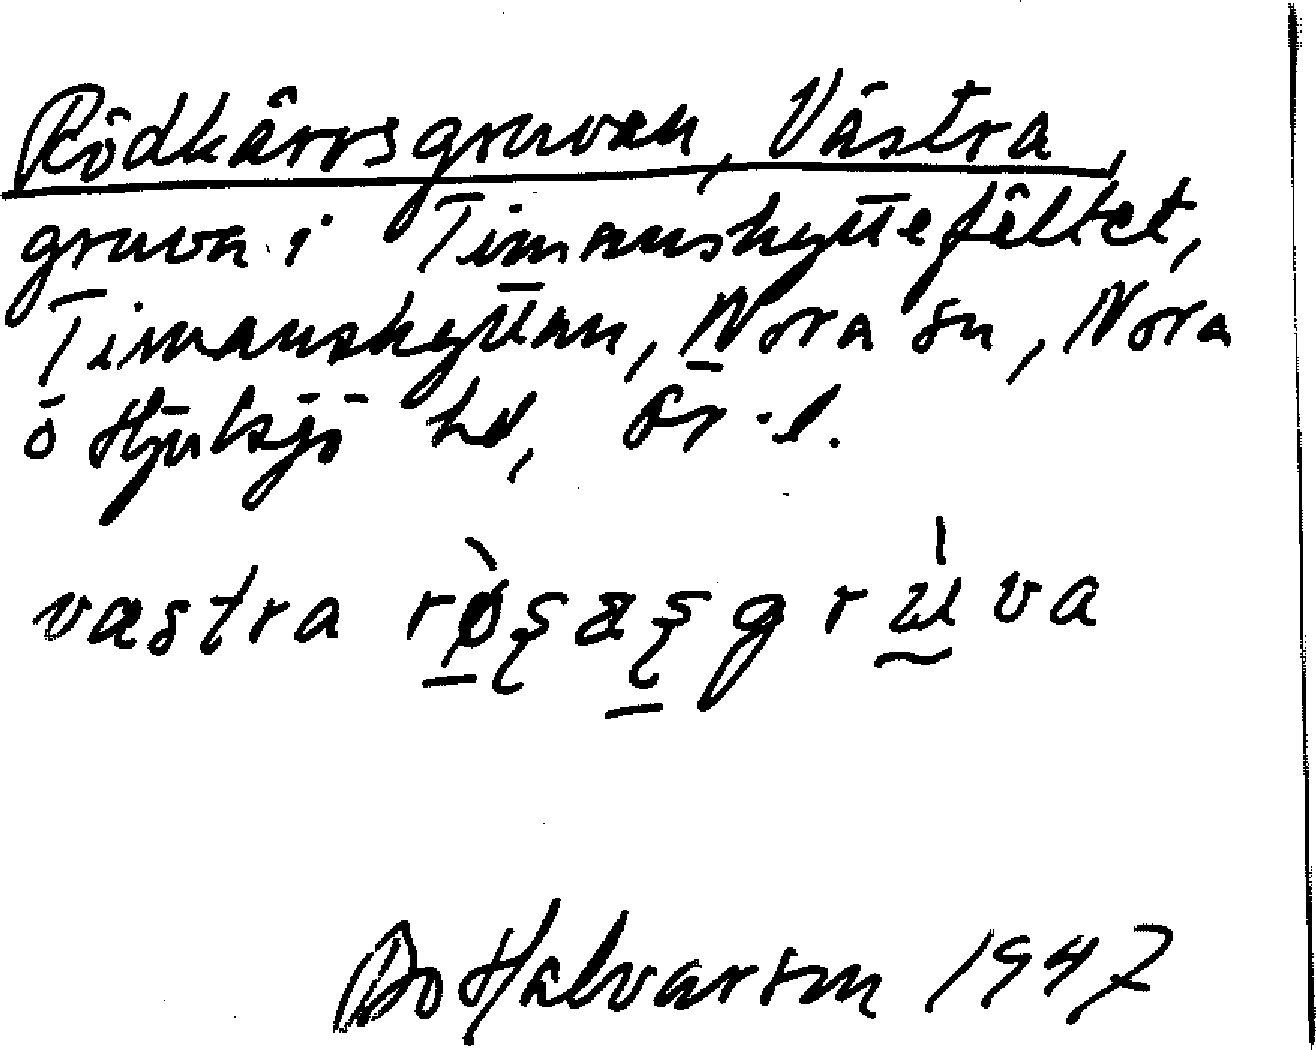 Rödkärrsgruvan, Västra,
gruva i Timanshyttefältet,
Timanshyttan, Nora sn, Nora
o Hjulsjö hd, Ör. l.
vastra
Bo Halvarson 1947